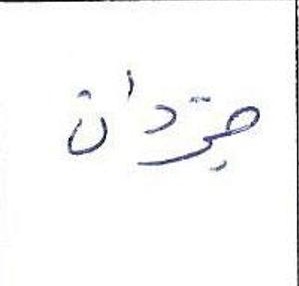 جردان